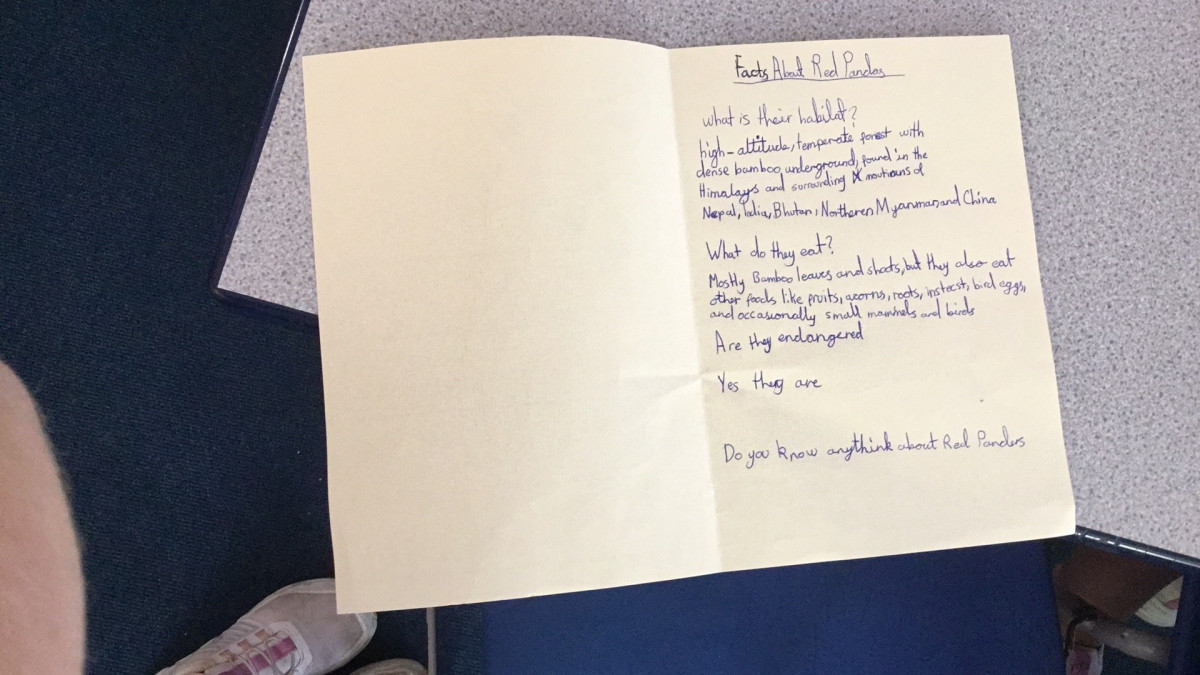 Facts About Red Pandas
what is their habitat?
high-altitude, temperate forest with
dense bamboo underground, found in the
Himalays and surrounding moutians of
Nepal, India, Bhutan, Northeren Myanmar, and China
What do they eat?
Mostly Bamboo leaves and shoots, but they also eat
other foods like fruits, acorns, roots, instecst, bird eggs,
and occasionally small mammels and birds
Are they endangered
Yes they are
Do you know anythink about Red Panders